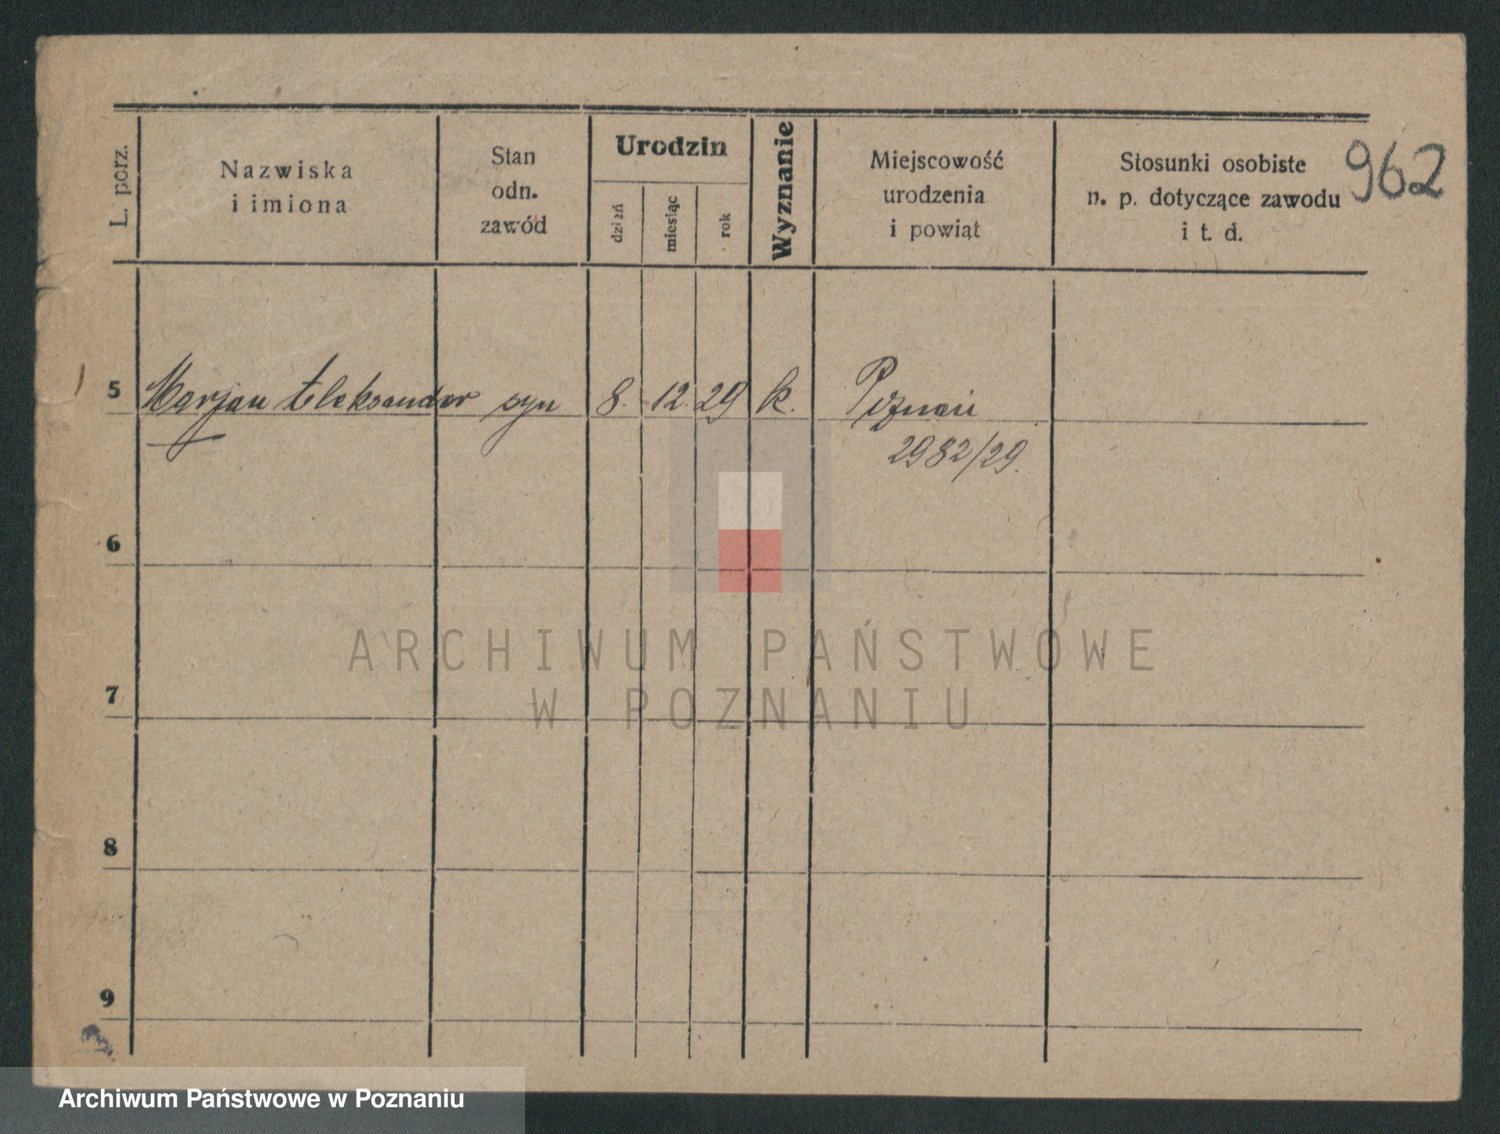 962
L. porz.
Nazwiska
i imiona
Stan
odn.
zawód
Urodzin
dzień
miesiąc
rok
Wyznanie
Miejscowość
urodzenia
i powiąt
Stosunki osobiste
n. p. dotyczące zawodu
i t. d.
5 Marjan Aleksander syn 8. 12. 29 k. Poznań
2982/29.
6
7
8
9
ARCHIWUM PAŃSTWOWE
W POZNANIU
Archiwum Państwowe w Poznaniu